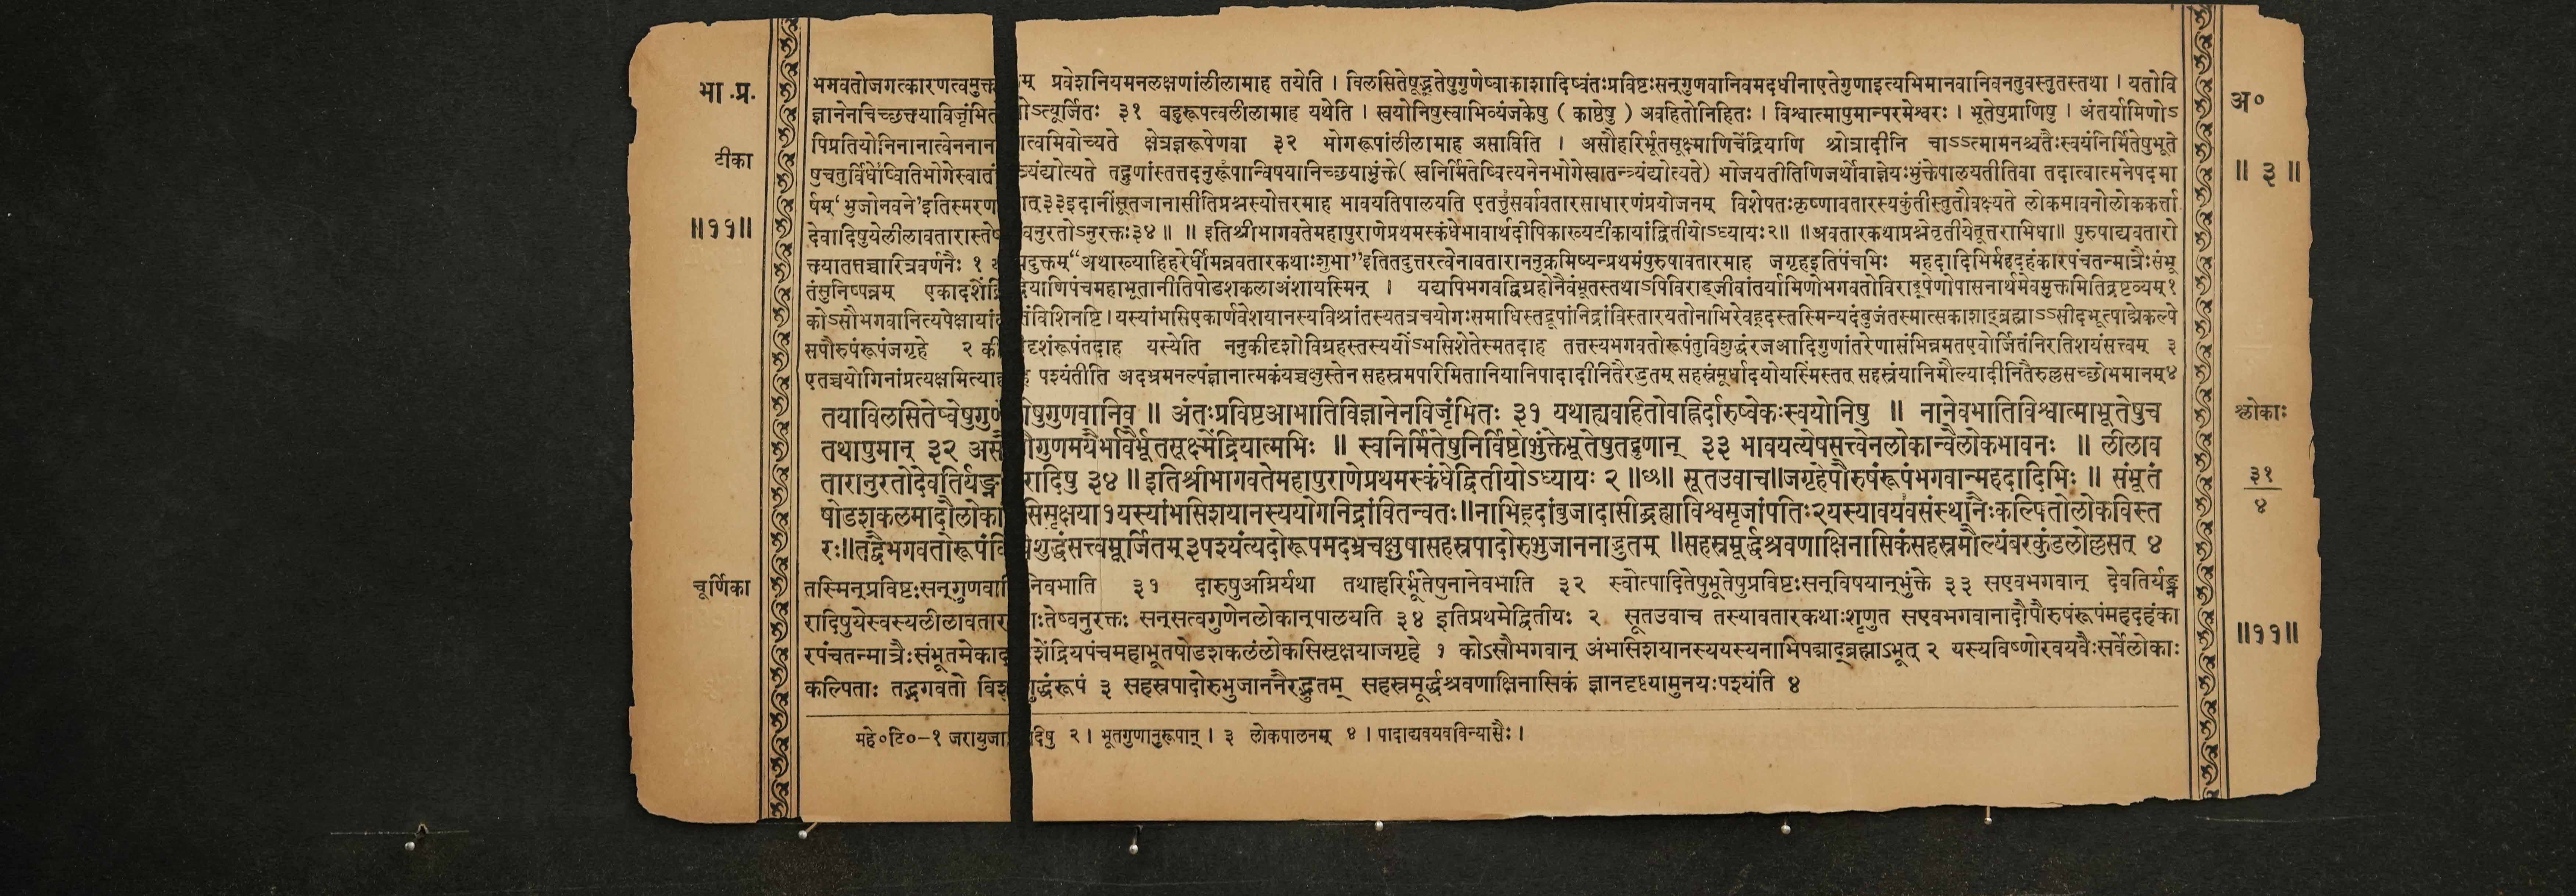 भा.प्र.
टीका
॥११॥
चूर्णिका
भमवतोजगत्कारणत्वमुक्त म् प्रवेशनियमनलक्षणांलीलामाह तयेति । विलसितेषूद्भूतेषुगुणेष्वाकाशादिष्वंतःप्रविष्टःसन्गुणवानिवमदधीनाएतेगुणाइत्यभिमानवानिवनतुवस्तुतस्तथा । यतोवि
ज्ञानेनचिच्छत्तयाविजृंभित ोऽत्यूर्जितः ३१ बहुरूपत्वलीलामाह यथेति । स्वयोनिषुस्वाभिव्यंजकेषु ( काष्ठेषु ) अवहितोनिहितः । विश्वात्मापुमान्परमेश्वरः । भूतेषुप्राणिषु । अंतर्यामिणोऽ
पिप्रतियोनिनानात्वेननान ात्वमिवोच्यते क्षेत्रज्ञरूपेणवा ३२ भोगरूपांलीलामाह असाविति । असौहरिर्भूतसूक्ष्माणिचेंद्रियाणि श्रोत्रादीनि चाऽऽत्मामनश्चतैःस्वयंनिर्मितेषुभूते
षुचतुर्विधेष्वितिभोगेस्वातं ्यंद्योत्यते तद्गुणांस्तत्तदनुरूपान्विषयानिच्छयाभुंक्ते( स्वनिर्मितेष्वित्यनेनभोगेस्वातन्त्र्यंद्योत्यते) भोजयतीतिणिजर्थोवाज्ञेयःभुंक्तेपालयतीतिवा तदात्वात्मनेपदमा
र्षम्‘भुजोनवने’इतिस्मरण ात् ३३इदानींसूतजानासीतिप्रश्नस्योत्तरमाह भावयतिपालयति एतत्तुसर्वावतारसाधारणंप्रयोजनम् विशेषतःकृष्णावतारस्यकुंतीस्तुतौवक्ष्यते लोकभावनोलोककर्त्ता
देवादिषुयेलीलावतारास्तेष वनुरतोऽनुरक्तः३४॥ ॥ इतिश्रीभागवतेमहापुराणेप्रथमस्कंधेभावार्थदीपिकाख्यटीकायांद्वितीयोऽध्यायः२॥ ॥अवतारकथाप्रश्नेतृतीयेतूत्तराभिधा॥ पुरुषाद्यवतारो
क्तयातत्तच्चारित्रवर्णनैः १ यदुक्तम्“अथाख्याहिहरेर्धीमन्नवतारकथाःशुभा”इतितदुत्तरत्वेनावताराननुक्रमिष्यन्प्रथमंपुरुषावतारमाह जगृहइतिपंचभिः महदादिभिर्महदहंकारपंचतन्मात्रैःसंभू
तंसुनिष्पन्नम् एकादशेंद्रि ियाणिपंचमहाभूतानीतिषोडशकलाअंशायस्मिन् । यद्यपिभगवद्विग्रहोनैवंभूतस्तथाऽपिविराड्जीवांतर्यामिणोभगवतोविराड्रूपेणोपासनार्थमेवमुक्तमितिद्रष्टव्यम्१
कोऽसौभगवानित्यपेक्षायांत ंविशिनष्टि । यस्यांभसिएकार्णवेशयानस्यविश्रांतस्यतत्रचयोगःसमाधिस्तद्रूपांनिद्रांविस्तारयतोनाभिरेवह्रदस्तस्मिन्यदंबुजंतस्मात्सकाशाद्ब्रह्माऽऽसीदभूत्पाद्मेकल्पे
सपौरुषंरूपंजगृहे २ की दृशंरूपंतदाह यस्येति ननुकीदृशोविग्रहस्तस्ययोंऽभसिशेतेस्मतदाह तत्तस्यभगवतोरूपंतुविशुद्धंरजआदिगुणांतरेणासंभिन्नमतएवोर्जितंनिरतिशयंसत्त्वम् ३
एतच्चयोगिनांप्रत्यक्षमित्याह पश्यंतीति अदभ्रमनल्पंज्ञानात्मकंयच्चक्षुस्तेन सहस्रमपरिमितानियानिपादादीनितैरद्भुतम् सहस्रंमूर्धादयोयस्मिंस्तत् सहस्रंयानिमौल्यादीनितैरुल्लसच्छोभमानम्४
तयाविलसितेष्वेषुगुणे षुगुणवानिव ॥ अंतःप्रविष्टआभातिविज्ञानेनविजृंभितः ३१ यथाह्यवहितोवह्निर्दारुष्वेकःस्वयोनिषु ॥ नानेवभातिविश्वात्माभूतेषुच
तथापुमान् ३२ असौ गुणमयैर्भावैर्भूतसूक्ष्मेंद्रियात्मभिः ॥ स्वनिर्मितेषुनिर्विष्टोभुंक्तेभूतेषुतद्गुणान् ३३ भावयत्येषसत्त्वेनलोकान्वैलोकभावनः ॥ लीलाव
तारानुरतोदेवतिर्यङ्न रादिषु ३४ ॥ इतिश्रीभागवतेमहापुराणेप्रथमस्कंधेद्वितीयोऽध्यायः २ ॥छ॥ सूतउवाच॥जगृहेपौरुषंरूपंभगवान्महदादिभिः ॥ संभूतं
षोडशकलमादौलोका सिमृक्षया१यस्यांभसिशयानस्ययोगनिद्रांवितन्वतः॥नाभिह्रदांबुजादासीद्ब्रह्माविश्वसृजांपतिः२यस्यावयवसंस्थानैःकल्पितोलोकविस्त
रः॥तद्वैभगवतोरूपंवि शुद्धंसत्त्वमूर्जितम्३पश्यंत्यदोरूपमदभ्रचक्षुषासहस्रपादोरुभुजाननाद्भुतम् ॥सहस्रमूर्द्धश्रवणाक्षिनासिकंसहस्रमौल्यंबरकुंडलोल्लसत् ४
तस्मिन्प्रविष्टःसन्गुणवानि निवभाति ३१ दारुषुअग्निर्यथा तथाहरिर्भूतेषुनानेवभाति ३२ स्वोत्पादितेषुभूतेषुप्रविष्टःसन्विषयान्भुंक्ते ३३ सएवभगवान् देवतिर्यङ्न
रादिषुयेस्वस्यलीलावतार ाःतेष्वनुरक्तः सन्सत्वगुणेनलोकान्पालयति ३४ इतिप्रथमेद्वितीयः २ सूतउवाच तस्यावतारकथाःशृणुत सएवभगवानादौपौरुषंरूपंमहदहंका
रपंचतन्मात्रैःसंभूतमेकाद शेंद्रियपंचमहाभूतषोडशकलंलोकसिसृक्षयाजगृहे १ कोऽसौभगवान् अंभसिशयानस्ययस्यनाभिपद्माद्ब्रह्माऽभूत् २ यस्यविष्णोरवयवैःसर्वेलोकाः
कल्पिताः तद्भगवतो विशु ुद्धंरूपं ३ सहस्रपादोरुभुजाननैरद्भुतम् सहस्रमूर्द्धश्रवणाक्षिनासिकं ज्ञानदृष्ट्यामुनयःपश्यंति ४
महे०टि०–१ जरायुजा दिषु २ । भूतगुणानुरूपान् । ३ लोकपालनम् ४ । पादाद्यवयवविन्यासैः ।
अ०
॥ ३ ॥
श्लोकाः
३१
४
॥११॥